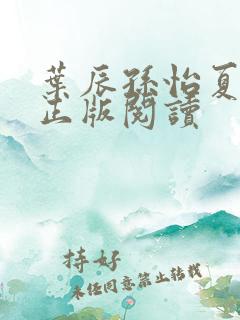 葉辰孫怡夏
正版閱讀
持好
未经同意禁止转载